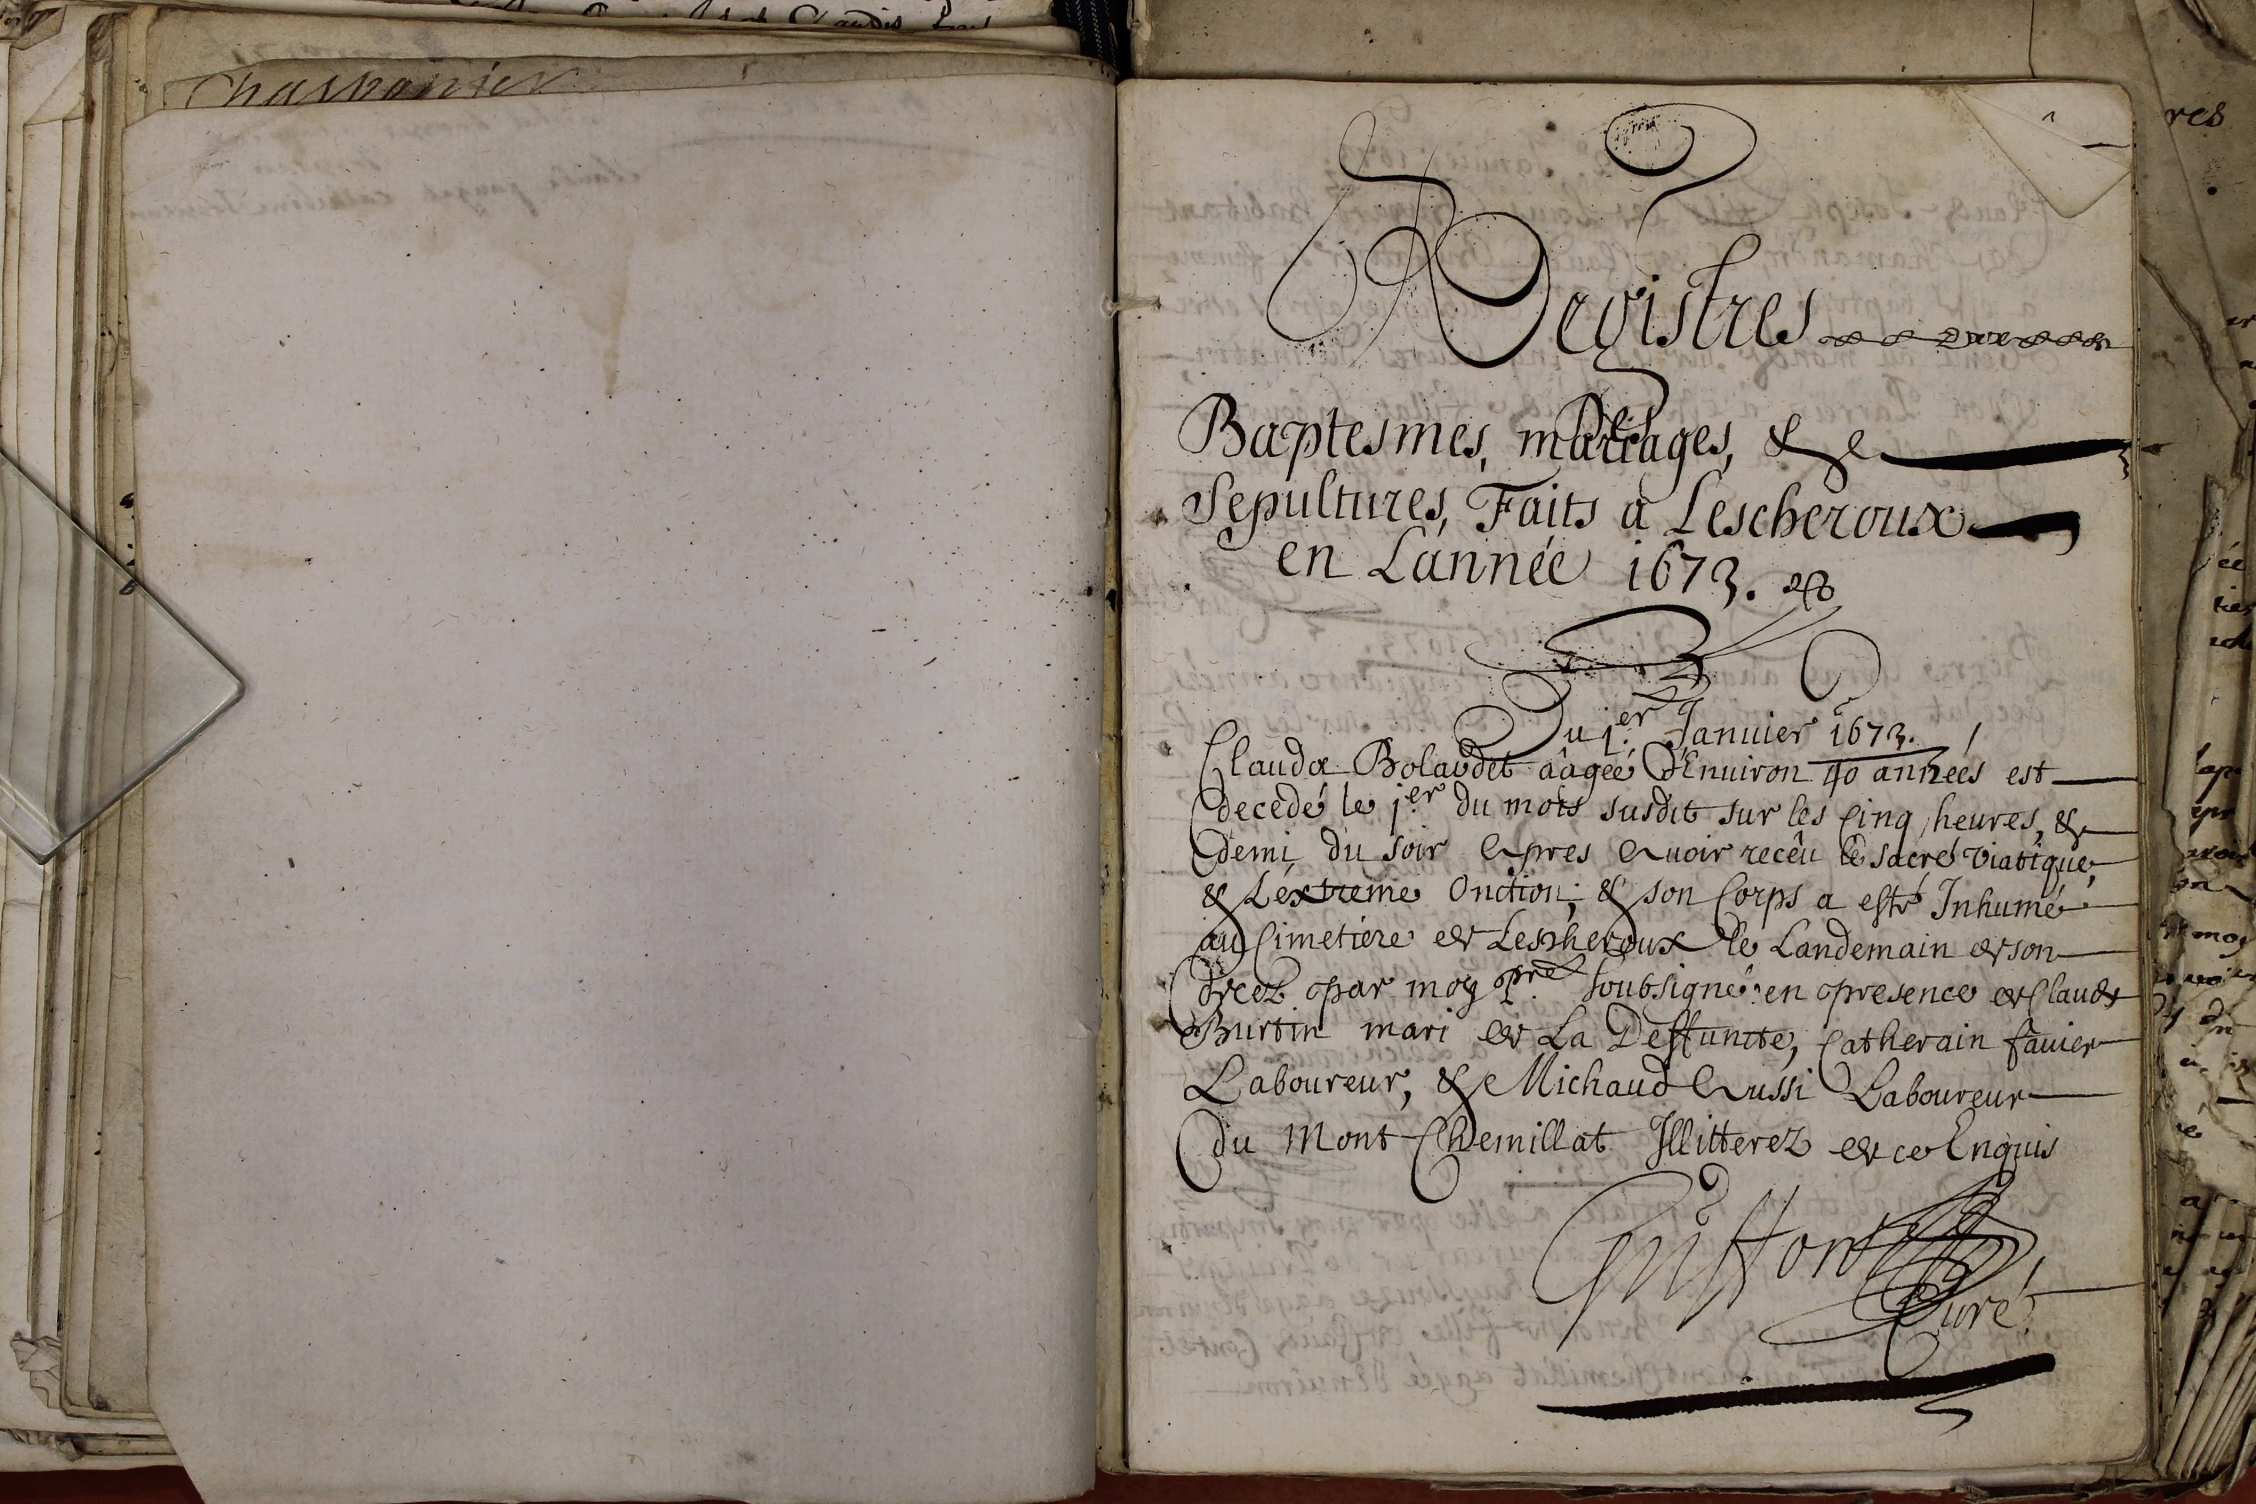 Registres
Des
Baptesmes, mariages, &
Sepultures, Faits a Lescheroux
en L'année 1673.
Du 1.er Januier 1673.
Clauda Bolaudet aâgeé d'Enuiron 40 anneés est
decedé le j.er du mois susdit sur les Cinq heures, &
demi du soir Apres Auoir receû le sacré viatique,
& L'extreme Onction; & son Corps a esté Inhumé
au Cimetiere de Lescheroux le Landemain de son
decez par moy pre. soubsigné: en presence de Claude
Burtin mari de La Deffuncte, Catherain fauier
Laboureur, & Michaud Aussi Laboureur
du Mont Chemillat Illitterez de ce Enquis
Curé